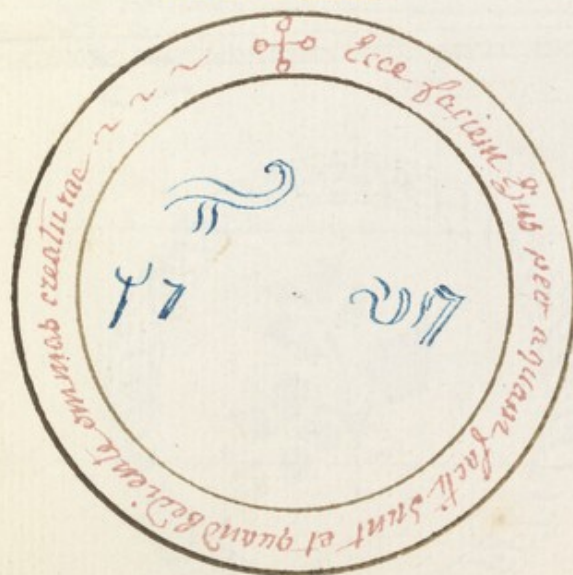 Ecce faciem Ejus per aquam facti sunt et quand bediente omnias creaturae